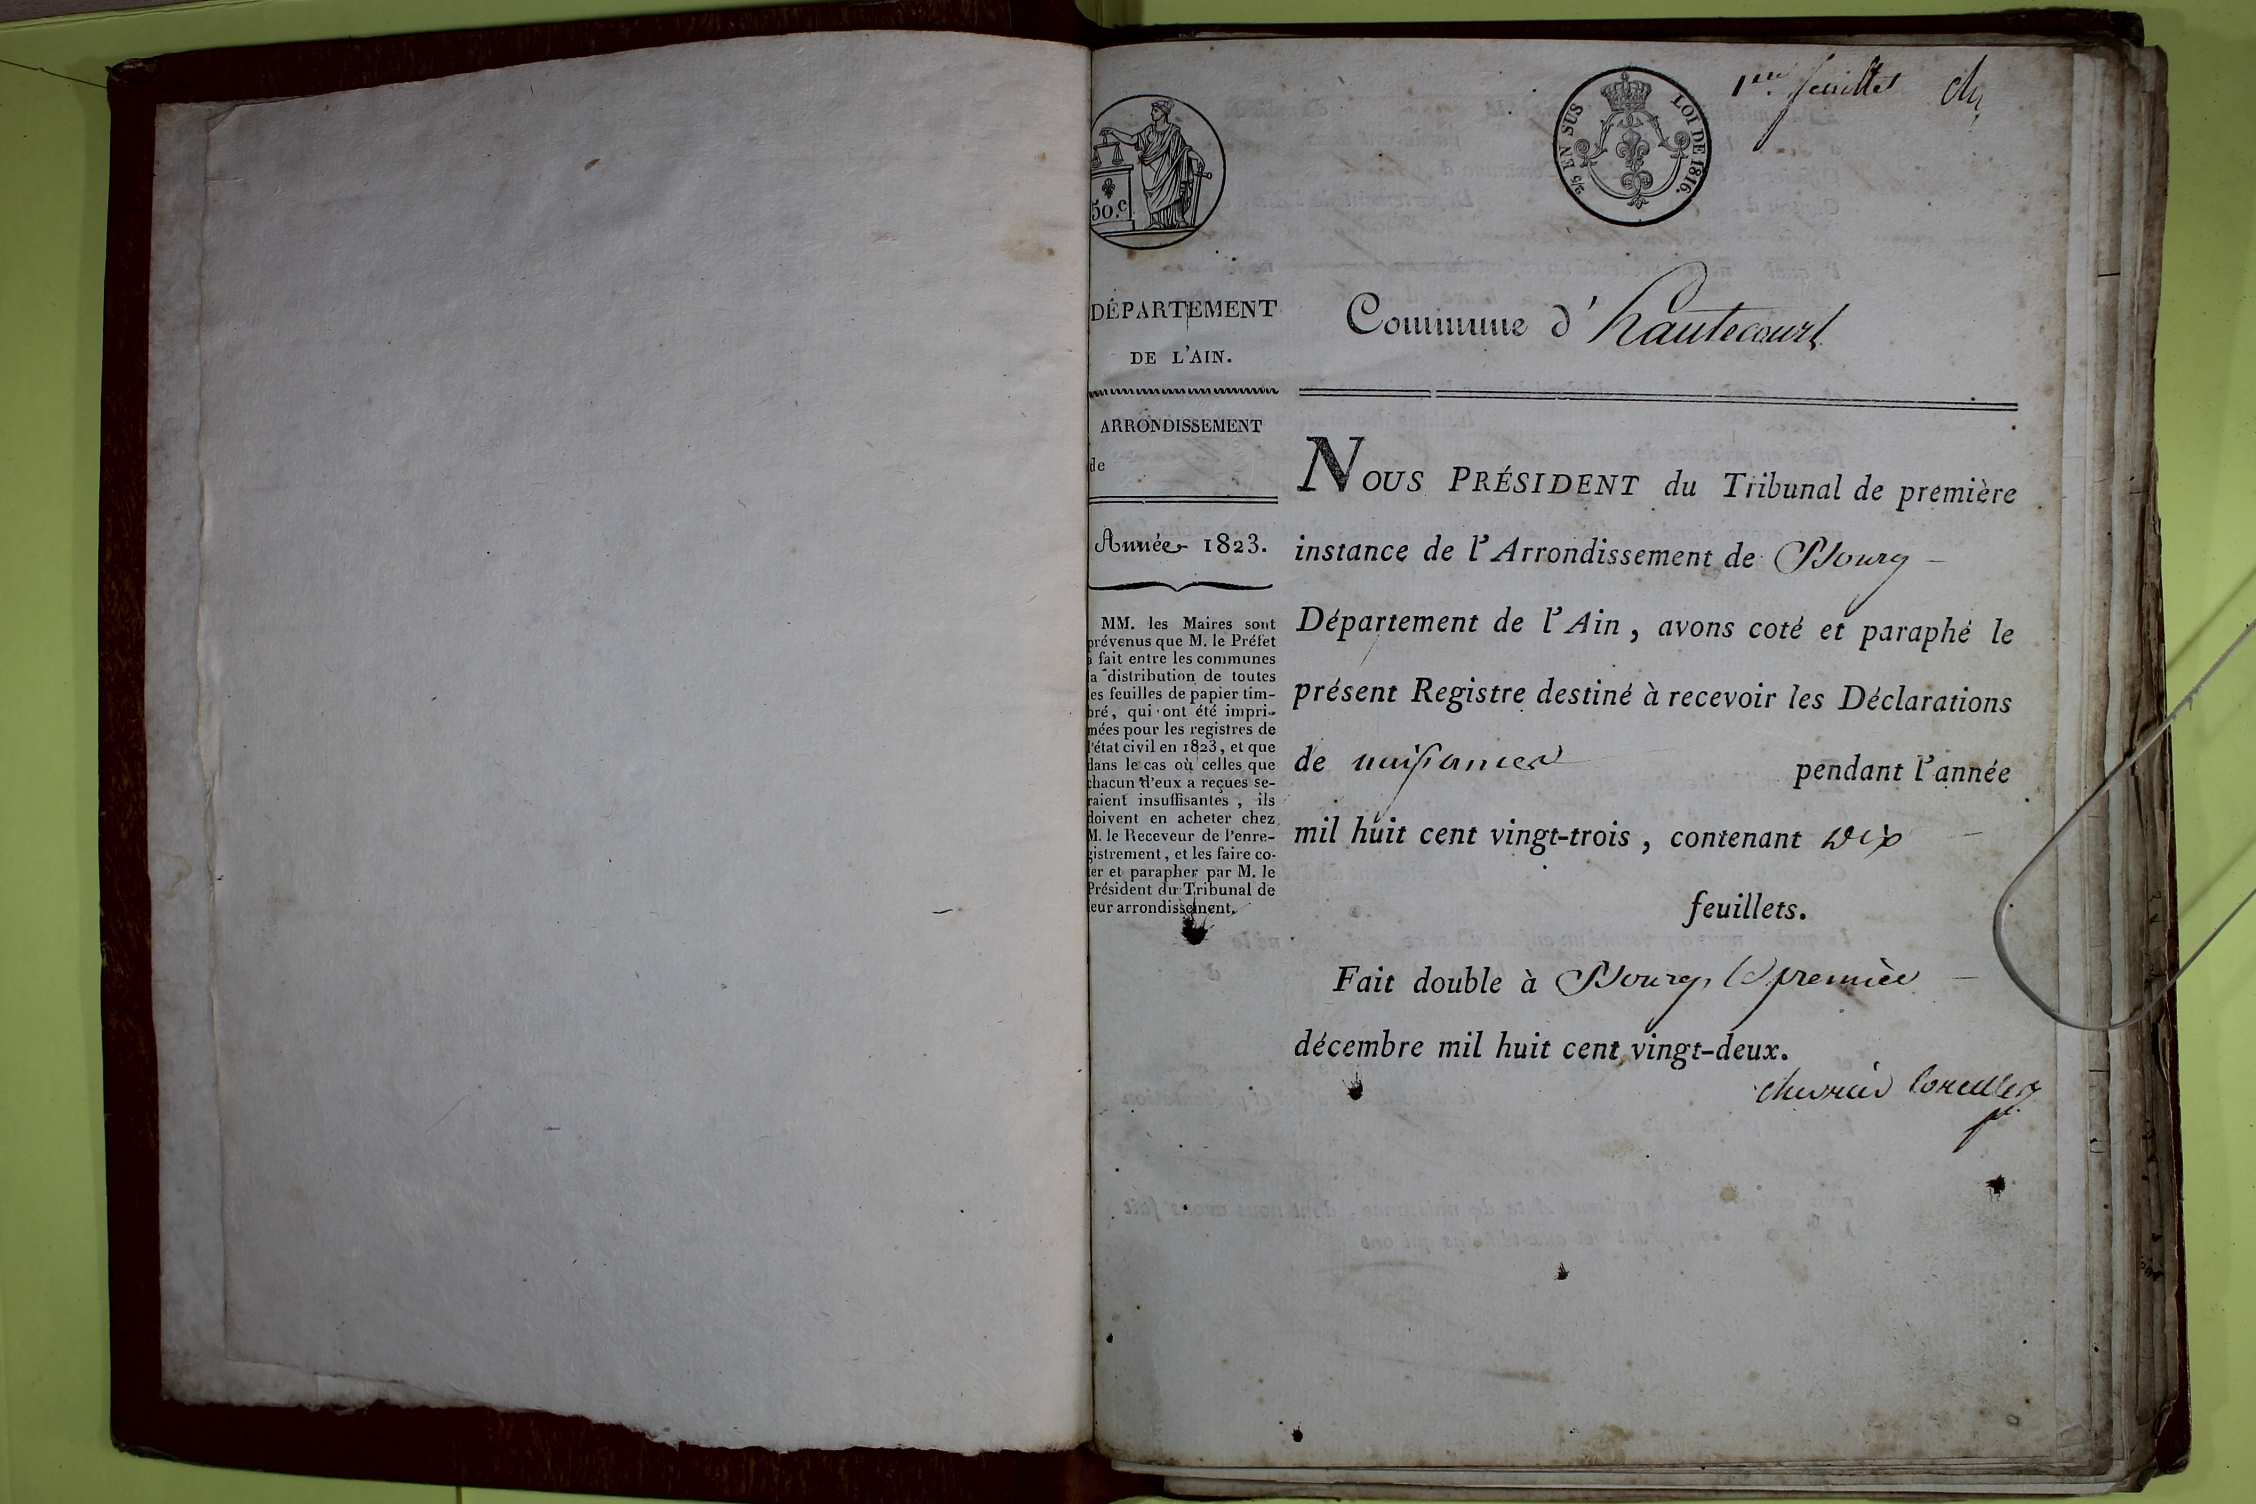 1er. feuillet
2/5 EN SUS
LOI DE 1816.
50.c
DÉPARTEMENT
DE L'AIN.
ARRONDISSEMENT
de
Année 1823.
MM. les Maires sont
prévenus que M. le Préfet
a fait entre les communes
la distribution de toutes
les feuilles de papier tim-
bré, qui ont été impri-
mées pour les registres de
l'état civil en 1823, et que
dans le cas où celles que
chacun d'eux a reçues se-
raient insuffisantes, ils
doivent en acheter chez
M. le Receveur de l'enre-
gistrement, et les faire co-
ter et parapher par M. le
Président du Tribunal de
leur arrondissement.
Commune d'hautecourt
NOUS PRÉSIDENT du Tribunal de première
instance de l'Arrondissement de Bourg
Département de l'Ain, avons coté et paraphé le
présent Registre destiné à recevoir les Déclarations
de naissances pendant l'année
mil huit cent vingt-trois, contenant dix
feuillets.
Fait double à Bourg, le premier
décembre mil huit cent vingt-deux.